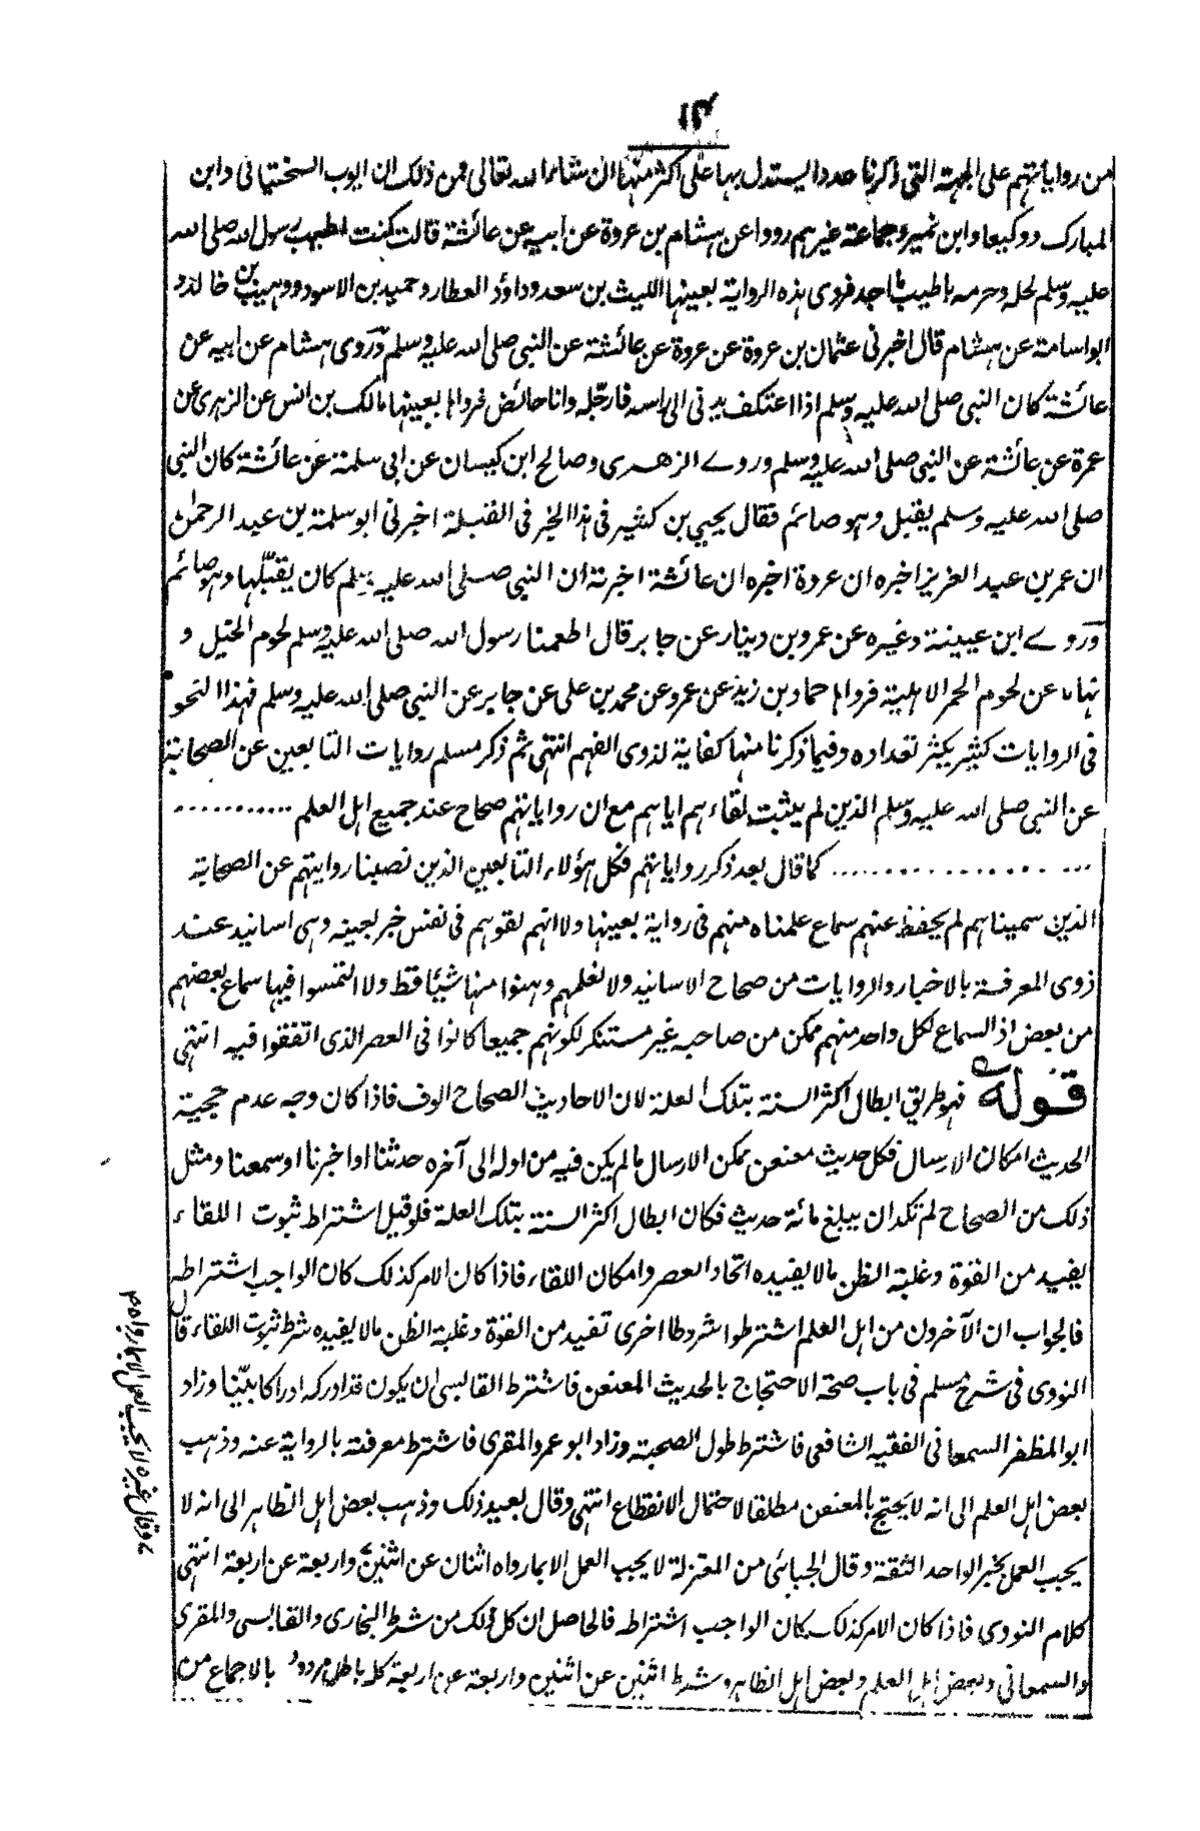 من رواياتهم على الجهة التى ذكرنا عددا يستدل بها على اكثر منها ان شاء الله تعالى فمن ذلك ان ايوب السختيانى وابن
المبارك ووكيعا وابن نمير وجماعة غيرهم رووا عن هشام بن عروة عن ابيه عن عائشة قالت كنت اطيب رسول الله صلى الله
عليه وسلم لحله وحرمه باطيب ما اجد فروى هذه الرواية بعينها الليث بن سعد وداؤد العطار وحميد بن الاسود ووهيب بن خالد و
ابو اسامة عن هشام قال اخبرنى عثمان بن عروة عن عروة عن عائشة عن النبى صلى الله عليه وسلم وروى هشام عن ابيه عن
عائشة كان النبى صلى الله عليه وسلم اذا اعتكف يدنى الى راسه فارجّله وانا حائض فرواها بعينها مالك بن انس عن الزهرى عن
عمرة عن عائشة عن النبى صلى الله عليه وسلم وروے الزهرى وصالح ابن كيسان عن ابى سلمة عن عائشة كان النبى
صلى الله عليه وسلم يقبل وهو صائم فقال يحيى بن كثير فى هذا الخبر فى القبلة اخبرنى ابو سلمة بن عبد الرحمٰن
ان عمر بن عبد العزيز اخبره ان عروة اخبره ان عائشة اخبرته ان النبى صلى الله عليه وسلم كان يقبّلها وهو صائم
وروے ابن عيينة وغيره عن عمرو بن دينار عن جابر قال اطعمنا رسول الله صلى الله عليه وسلم لحوم الخيل و
نهانا عن لحوم الحمر الاهلية فرواها حماد بن زيد عن عمرو عن محمد بن على عن جابر عن النبى صلى الله عليه وسلم فهذا النحو
فى الروايات كثير يكثر تعداده وفيما ذكرنا منها كفاية لذوى الفهم انتهى ثم ذكر مسلم روايات التابعين عن الصحابة
عن النبى صلى الله عليه وسلم الذين لم يثبت لقاءهم اياهم مع ان رواياتهم صحاح عند جميع اهل العلم ...........
................ كما قال بعد ذكر رواياتهم فكل هؤلاء التابعين الذين نصبنا روايتهم عن الصحابة
الذين سميناهم لم يحفظ عنهم سماع علمناه منهم فى رواية بعينها ولا انهم لقوهم فى نفس خبر بعينه وهى اسانيد عند
ذوى المعرفة بالاخبار والروايات من صحاح الاسانيد ولا نعلمهم وهنوا منها شيئا قط ولا التمسوا فيها سماع بعضهم
من بعض اذ السماع لكل واحد منهم ممكن من صاحبه غير مستنكر لكونهم جميعا كانوا فى العصر الذى اتفقوا فيه انتهى
قوله فهو طريق ابطال اكثر السنة بتلك العلة لان الاحاديث الصحاح الوف فاذا كان وجه عدم حجية
الحديث امكان الارسال فكل حديث معنعن ممكن الارسال ما لم يكن فيه من اوله الى آخره حدثنا او اخبرنا او سمعنا ومثل
ذلك من الصحاح لم تكد ان يبلغ مائة حديث فكان ابطال اكثر السنة بتلك العلة فلو قيل اشتراط ثبوت اللقاء
يفيد من القوة وغلبة الظن مالا يفيده اتحاد العصر وامكان اللقاء فاذا كان الامر كذلك كان الواجب اشتراطه
فالجواب ان الآخرون من اهل العلم اشترطوا شروطا اخرى تفيد من القوة وغلبة الظن مالا يفيده شرط ثبوت اللقاء قال
النووى فى شرح مسلم فى باب صحة الاحتجاج بالحديث المعنعن فاشترط القابسى ان يكون قد ادركه ادراكا بيّنا وزاد
ابو المظفر السمعانى الفقيه الشافعى فاشترط طول الصحبة وزاد ابو عمرو المقرى فاشترط معرفته بالرواية عنه وذهب
بعض اهل العلم الى انه لا يحتج بالمعنعن مطلقا لاحتمال الانقطاع انتهى وقال بعيد ذلك وذهب بعض اهل الظاهر الى انه لا
يجب العمل بخبر الواحد الثقة وقال الجبائى من المعتزلة لا يجب العمل الا بما رواه اثنان عن اثنين واربعة عن اربعة انتهى
كلام النووى فاذا كان الامر كذلك كان الواجب اشتراطه فالحاصل ان كل ذلك من شرط البخارى والقابسى والمقرى
والسمعانى وبعض اهل العلم وبعض اهل الظاهر وشرط اثنين عن اثنين واربعة عن اربعة كل باطل مردود بالاجماع من
وقال غيره لا يجب العمل الا بما رواه